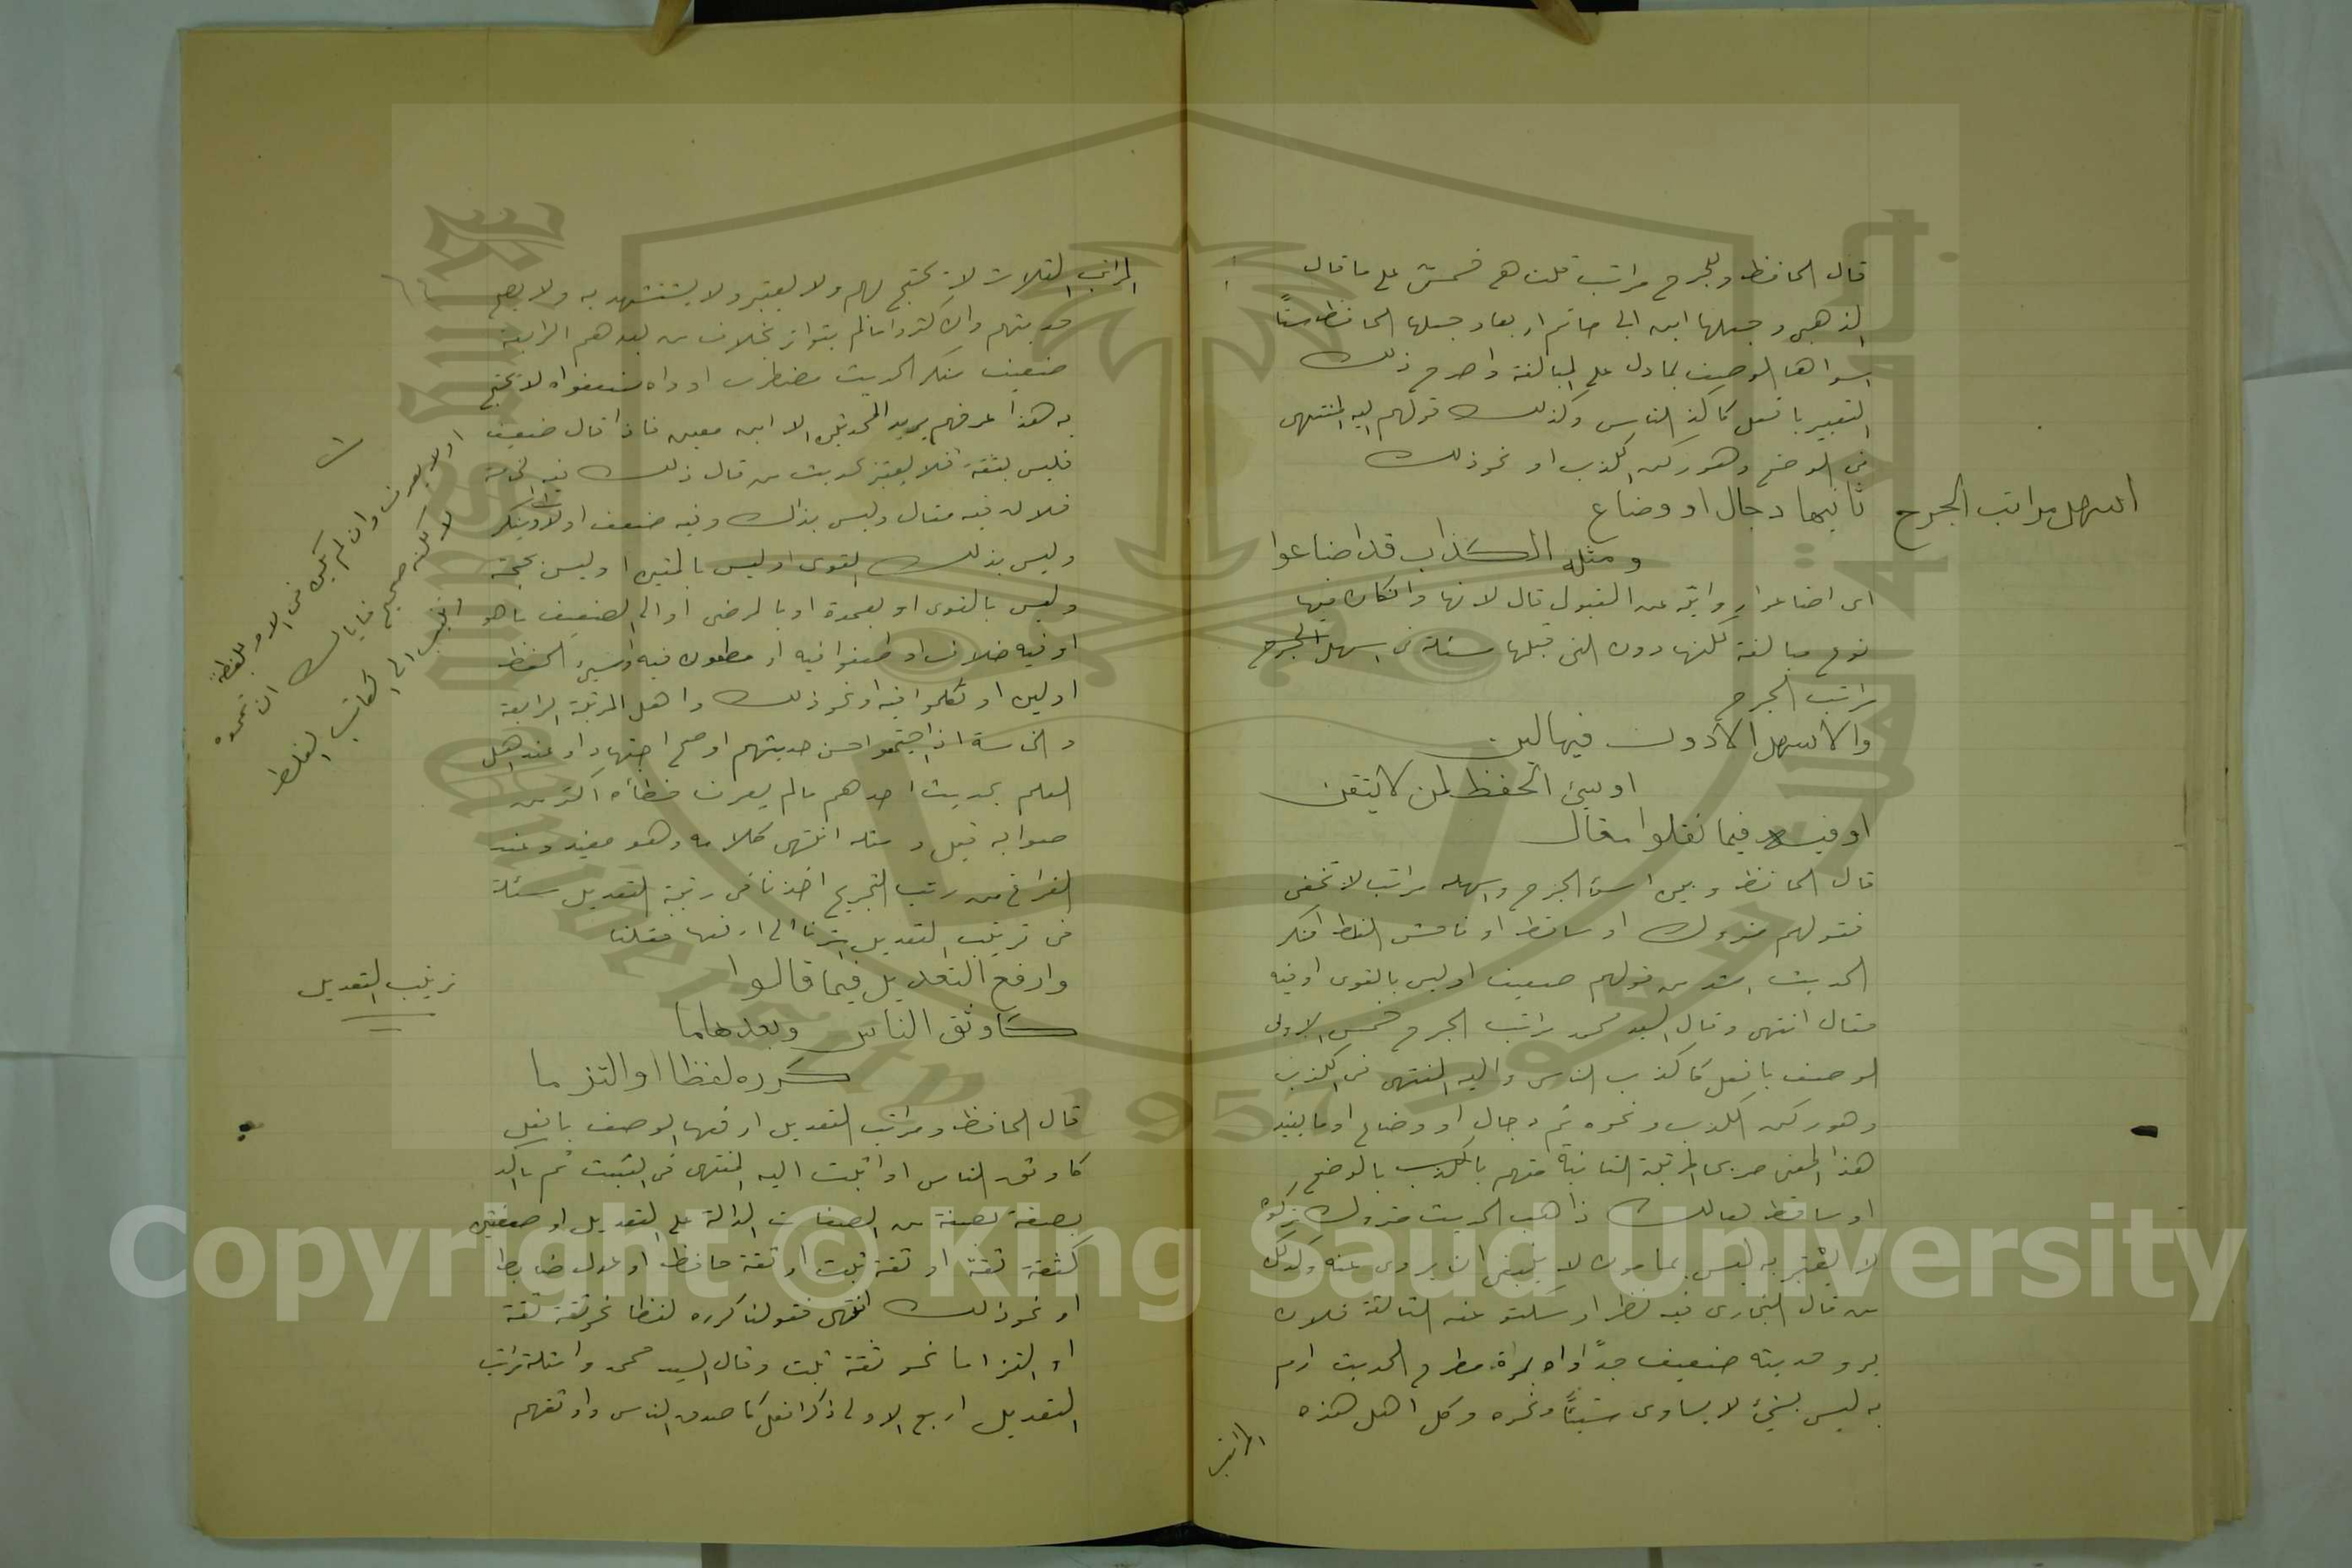 قال الحافظ وللجرح مراتب قلت هي خمس على ما قال
الذهبي وجعلها ابن ابي حاتم اربعا وجعلها الحافظ ستًا
اسواها الوصف بما دل على المبالغة واصرح ذلك
التعبير بافعل كاكذب الناس وكذلك قولهم اليه المنتهى
في الوضع وهو ركن الكذب او نحو ذلك
ثانيها دجال او وضاع
ومثله الكذاب قد اضاعوا
اي اضاعوا روايته عن القبول قال لانها وان كان فيها
نوع مبالغة لكنها دون التي قبلها مسئلة في اسهل الجرح
مراتب الجرح
اسهل مراتب الجرح
والاسهل الادون فيها لين
او سيئ الحفظ لمن لا يتقن
او فيه فيما نقلوا مقال
قال الحافظ وبين اسوأ الجرح واسهله مراتب لا تخفى
فقولهم متروك او ساقط او فاحش الغلط او منكر
الحديث اشد من قولهم ضعيف او ليس بالقوي او فيه
مقال انتهى وقال السيد محمد مراتب الجرح خمس الاولى
الوصف بافعل كاكذب الناس واليه المنتهى في الكذب
وهو ركن الكذب ونحوه ثم دجال او وضاع او ما يفيد
هذا المعنى صريحا المرتبة الثانية متهم بالكذب بالوضع
او ساقط هالك ذاهب الحديث متروك تركوه
لا يعتبر به ليس بمامون لا ينبغي ان يروى عنه وكذلك
من قال البخاري فيه نظر او سكتوا عنه الثالثة فلان
رد حديثه ضعيف جدًا واه بمرة مطرح الحديث ارم
به ليس بشيئ لا يساوي شيئًا ونحوه وكل اهل هذه
المراتب
المراتب الثلاث لا يحتج بهم ولا يعتبر ولا يستشهد به ولا يصح
حديثهم وان كثروا ما لم يتواتر بخلاف من بعدهم الرابعة
ضعيف منكر الحديث مضطرب او واه ضعفوه لا يحتج
به هذا عرفهم يريد المحدثين الا ابن معين فاذا قال ضعيف
فليس بثقة فلا يعتبر بحديث من قال ذلك فيه الخامسة
فلان فيه مقال وليس بذاك وفيه ضعف او ينكر
وليس بذلك القوي او ليس بالمتين او ليس بحجة
وليس بالقوي او بعمدة او بالمرضي او الى الضعيف ما هو
او فيه خلاف او طعنوا فيه او مطعون فيه او سيئ الحفظ
او لين او تكلموا فيه او نحو ذلك واهل المرتبة الرابعة
والخامسة اذا اجتمعوا حسن حديثهم او صح اجتهادا وعند اهل
العلم بحديث احدهم ما لم يعرف خطأه اكثر من
صوابه قبل ومثله انتهى كلامه وهو مفيد وعند
الفراغ من رتب التجريح اخذنا في رتبة التعديل مسئلة
في ترتيب التعديل اشرنا الى ارفعها فقلنا
ترتيب التعديل
وارفع التعديل فيما قالوا
كاوثق الناس وبعدها ما
كرره لفظا او التزما
قال الحافظ ومراتب التعديل ارفعها الوصف بافعل
كاوثق الناس او اثبت اليه المنتهى في الثبت ثم تاكد
بصفة بصفة من الصفات الدالة على التعديل او صفتين
كثقة ثقة او ثقة ثبت او ثقة حافظ او عدل ضابط
او نحو ذلك انتهى فقولنا كرره لفظا نحو ثقة ثقة
او التزاما نحو ثقة ثبت وقال السيد محمد وامثلة مراتب
التعديل اربع الاولى ذكر افعل كاصدق الناس واوثقهم
او لا يعرف وان لم يكن في الام بلفظه
لا لكنه صحيح فاياك ان تعده
انسب الى الكاتب الغلط
Copyright © King Saud University
1957